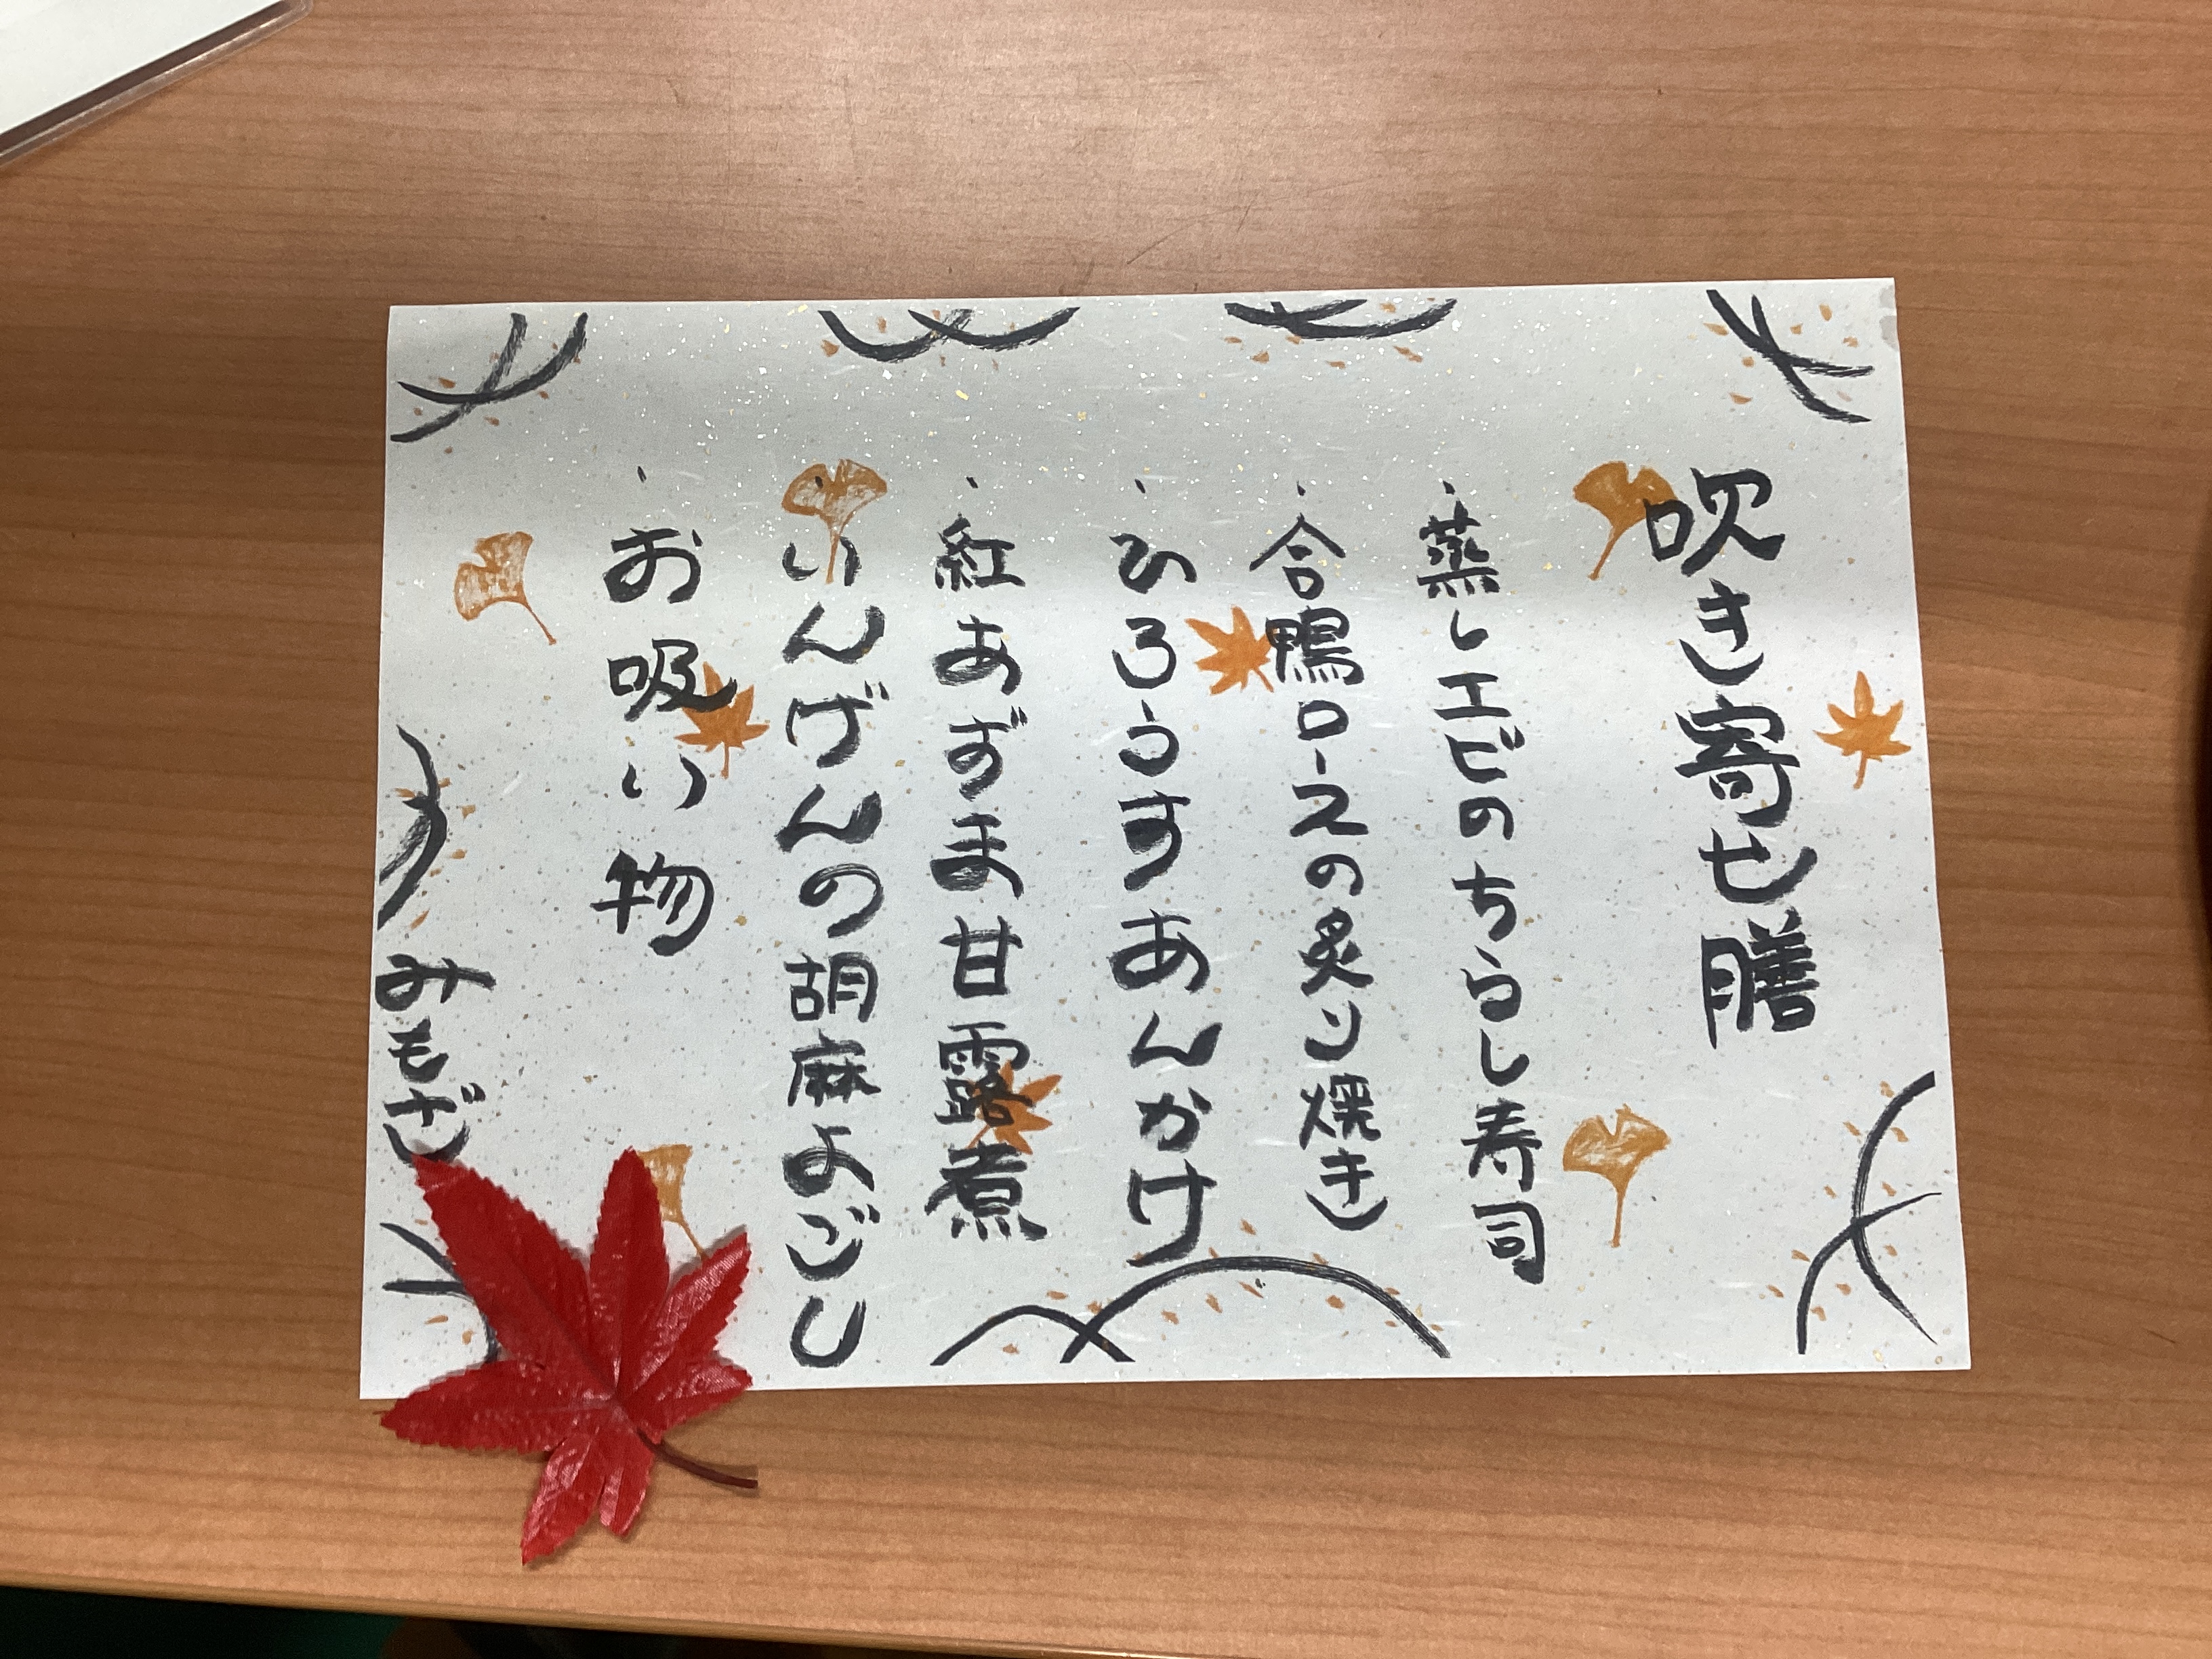 吹き寄せ膳
・蒸しエビのちらし寿司
・合鴨ロースの炙り焼き
・ひろうすあんかけ
・紅あずま甘露煮
・いんげんの胡麻よごし
・お吸い物
みもざ